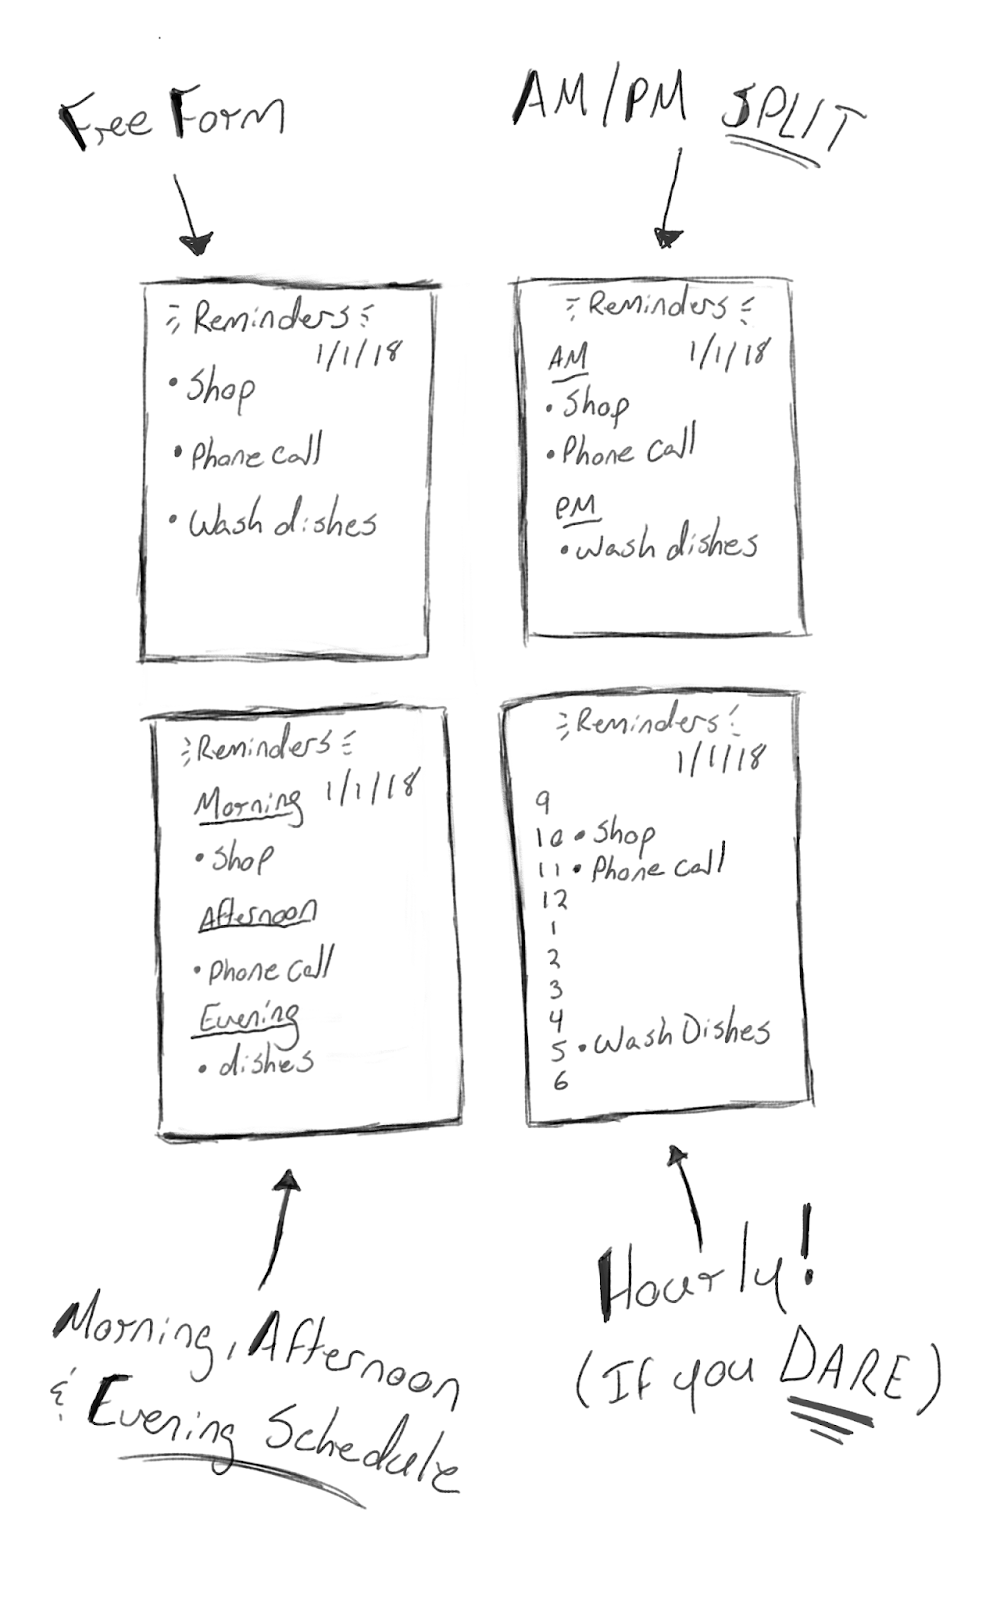 Free Form
AM/PM SPLIT
Reminders
1/1/18
• Shop
• Phone call
• Wash dishes
Reminders
AM 1/1/18
• Shop
• Phone call
PM
• Wash dishes
Reminders
Morning 1/1/18
• Shop
Afternoon
• Phone call
Evening
• dishes
Reminders
1/1/18
9
10 • Shop
11 • Phone call
12
1
2
3
4
5 • Wash Dishes
6
Morning, Afternoon
& Evening Schedule
Hourly!
(If you DARE)